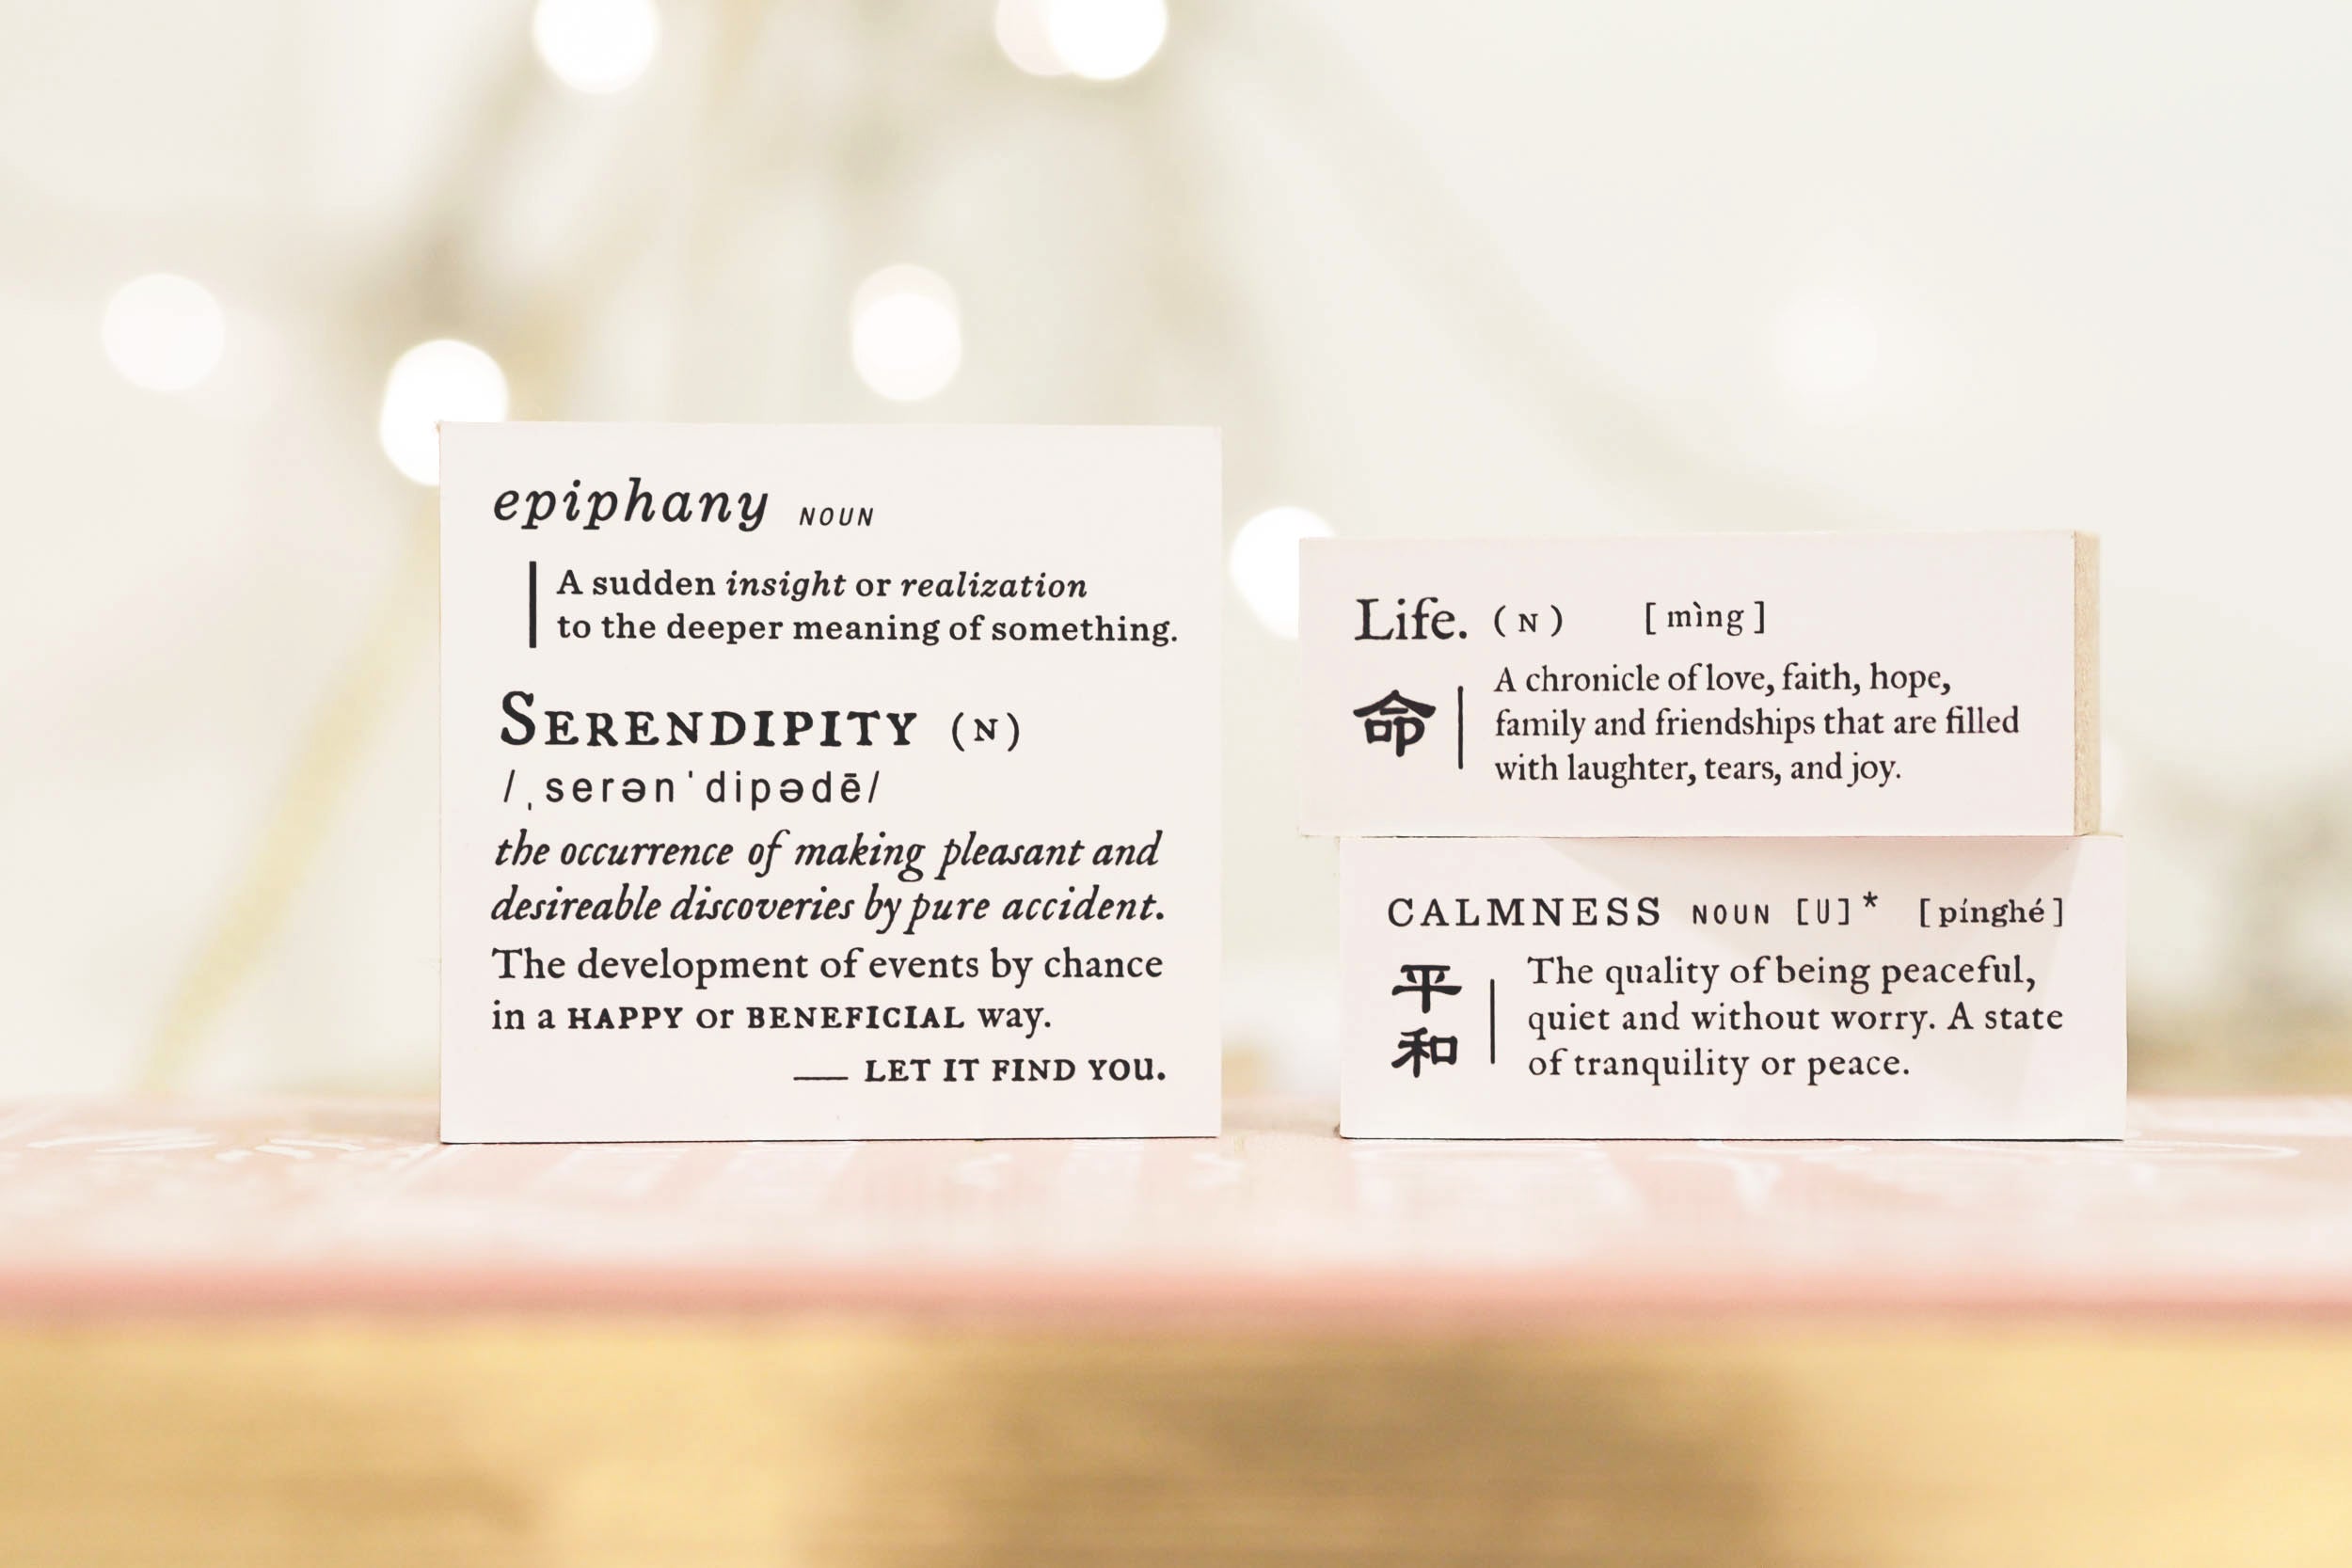 epiphany NOUN
A sudden insight or realization
to the deeper meaning of something.
SERENDIPITY (N)
/ˌserənˈdipədē/
the occurrence of making pleasant and
desireable discoveries by pure accident.
The development of events by chance
in a HAPPY or BENEFICIAL way.
— LET IT FIND YOU.
Life. (N) [mìng]
命
A chronicle of love, faith, hope,
family and friendships that are filled
with laughter, tears, and joy.
CALMNESS NOUN [U]* [pínghé]
平和
The quality of being peaceful,
quiet and without worry. A state
of tranquility or peace.